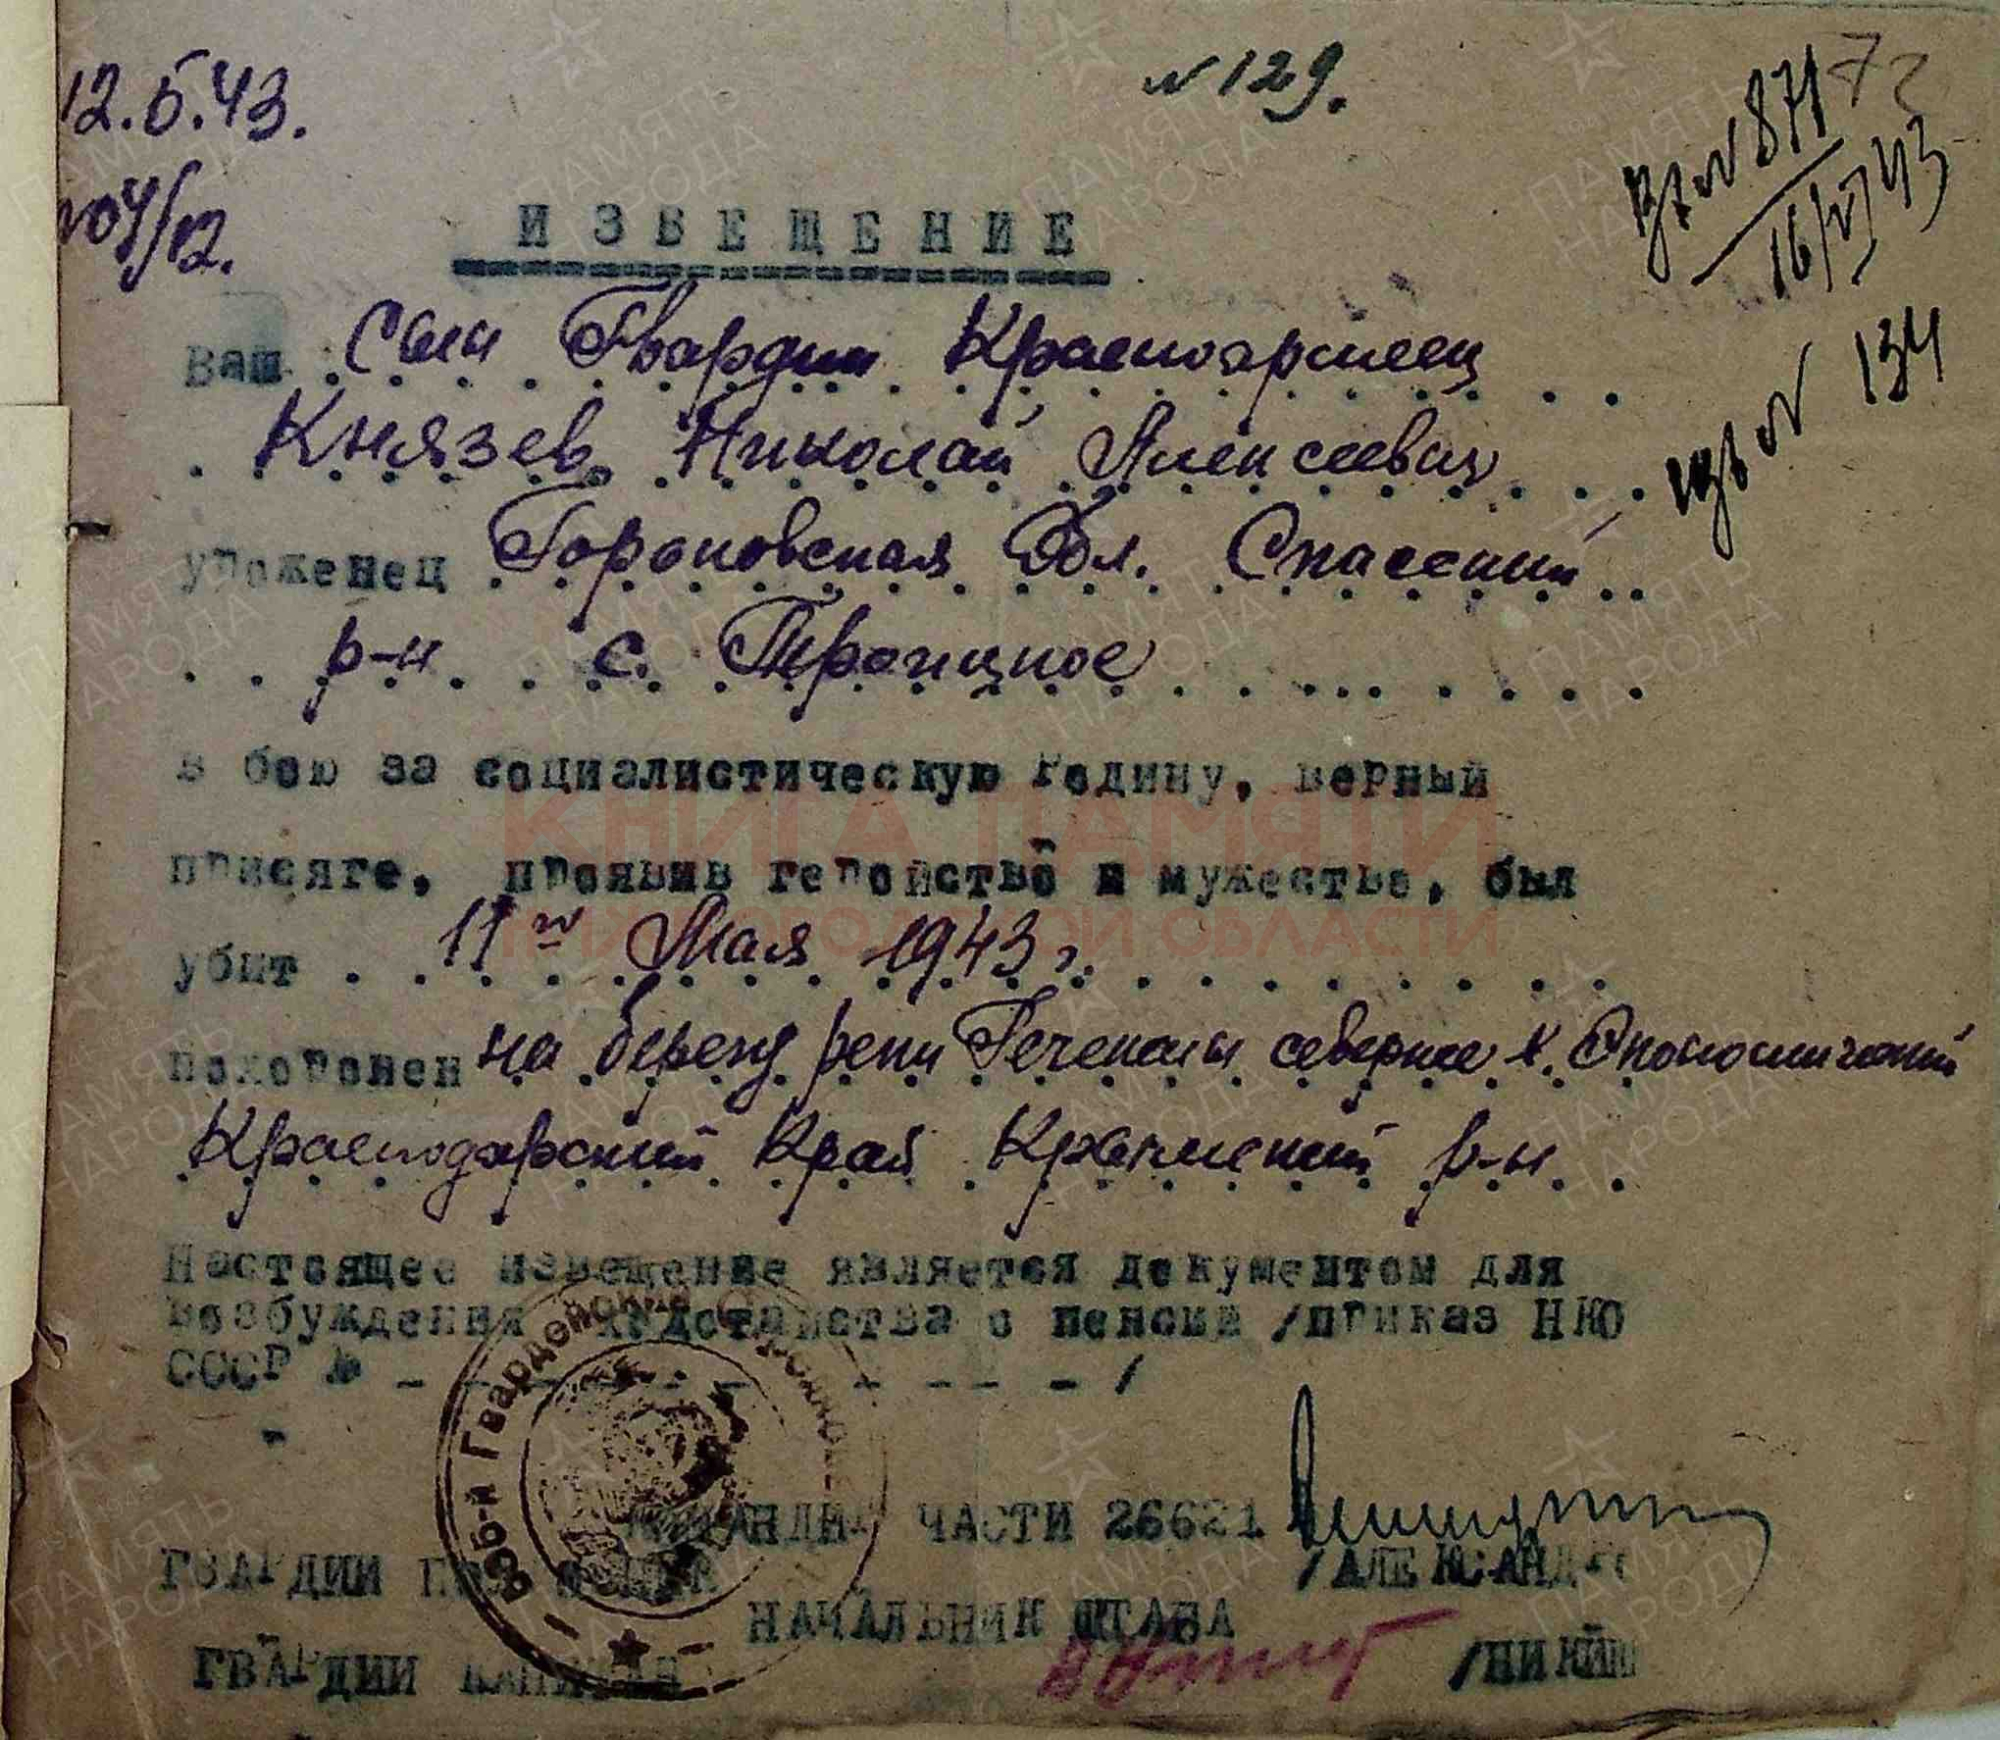 12.5.43.
№ 129.
04/12.
Вх № 871 73
16/VI 43
ИЗВЕЩЕНИЕ
№ 134
Ваш Сын Гвардии Красноармеец
Князев Николай Алексеевич
уроженец Горьковская Обл. Спасский
р-н с. Троицкое
в бою за социалистическую Родину, верный
присяге, проявив геройство и мужество, был
убит 11го Мая 1943 г.
похоронен на берегу реки Гечепсин севернее х.
Краснодарский Край Крымский р-н.
Настоящее извещение является документом для
возбуждения ходотайства о пенсии /приказ НКО
СССР № - - - - - - - - - /
КОМАНДИР ЧАСТИ 26621
ГВАРДИИ /АЛЕКСАНД
НАЧАЛЬНИК ШТАБА
ГВАРДИИ КАПИТАН
Гвардейский
ПАМЯТЬ НАРОДА
КНИГА ПАМЯТИ
НИЖЕГОРОДСКОЙ ОБЛАСТИ